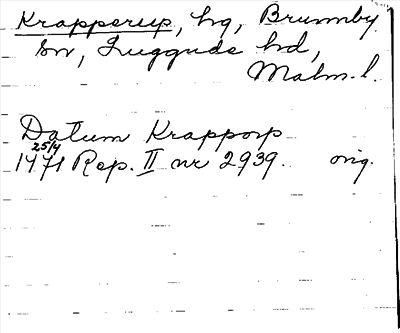 Krapperup, hg, Brunnby
sn, Luggude hd,
Malm. l.
Datum Krapporp
25/4
1471 Rep. II nr 2939. orig.